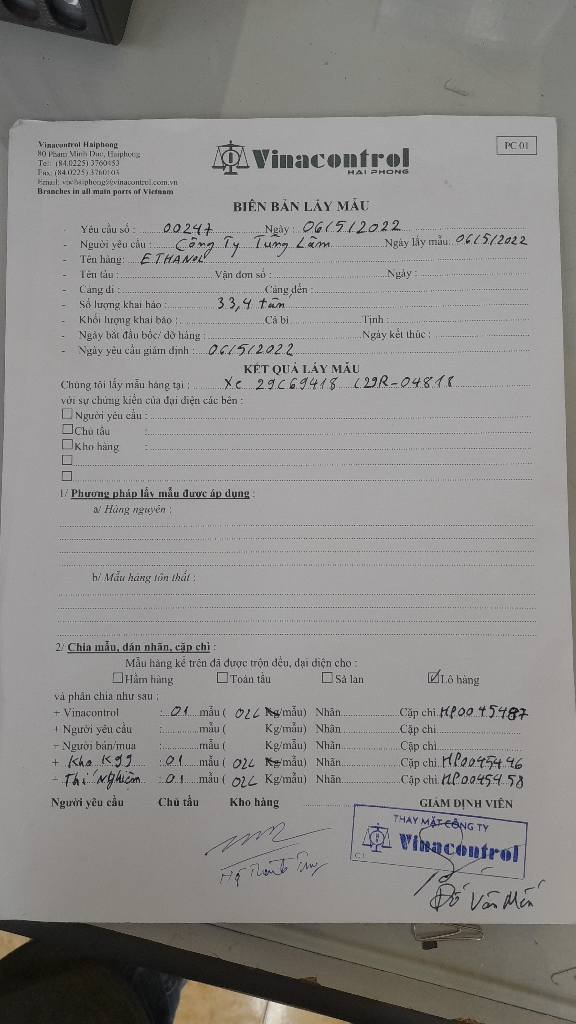 Vinacontrol Haiphong
80 Pham Minh Duc, Haiphong
Tel: (84.0225) 3760453
Fax: (84.0225) 3760103
Email: vnchaiphong@vinacontrol.com.vn
Branches in all main ports of Vietnam
Vinacontrol
HAI PHONG
PC 01
BIÊN BẢN LẤY MẪU
- Yêu cầu số : 00247 Ngày : 06/5/2022
- Người yêu cầu : Công Ty Tùng Lâm Ngày lấy mẫu: 06/5/2022
- Tên hàng: ETHANOL
- Tên tầu : Vận đơn số : Ngày :
- Cảng đi : Cảng đến :
- Số lượng khai báo : 33,4 tấn
- Khối lượng khai báo : Cả bì Tịnh :
- Ngày bắt đầu bốc/ dỡ hàng : Ngày kết thúc :
- Ngày yêu cầu giám định : 06/5/2022
KẾT QUẢ LẤY MẪU
Chúng tôi lấy mẫu hàng tại : Xe 29C69418 29R-04818
với sự chứng kiến của đại diện các bên :
Người yêu cầu :
Chủ tầu :
Kho hàng :
1/ Phương pháp lấy mẫu được áp dụng :
a/ Hàng nguyên :
b/ Mẫu hàng tổn thất :
2/ Chia mẫu, dán nhãn, cặp chì :
Mẫu hàng kể trên đã được trộn đều, đại diện cho :
Hầm hàng Toàn tầu Sà lan Lô hàng
và phân chia như sau :
+ Vinacontrol : 01 mẫu ( 02L Kg/mẫu) Nhãn Cặp chì HP0045487
+ Người yêu cầu : mẫu ( Kg/mẫu) Nhãn Cặp chì
+ Người bán/mua : mẫu ( Kg/mẫu) Nhãn Cặp chì
+ Kho K99 : 01 mẫu ( 02L Kg/mẫu) Nhãn Cặp chì HP0045496
+ Thí Nghiệm : 01 mẫu ( 02L Kg/mẫu) Nhãn Cặp chì HP0045458
Người yêu cầu Chủ tầu Kho hàng GIÁM ĐỊNH VIÊN
THAY MẶT CÔNG TY
Vinacontrol
C1
Đỗ Văn Mến